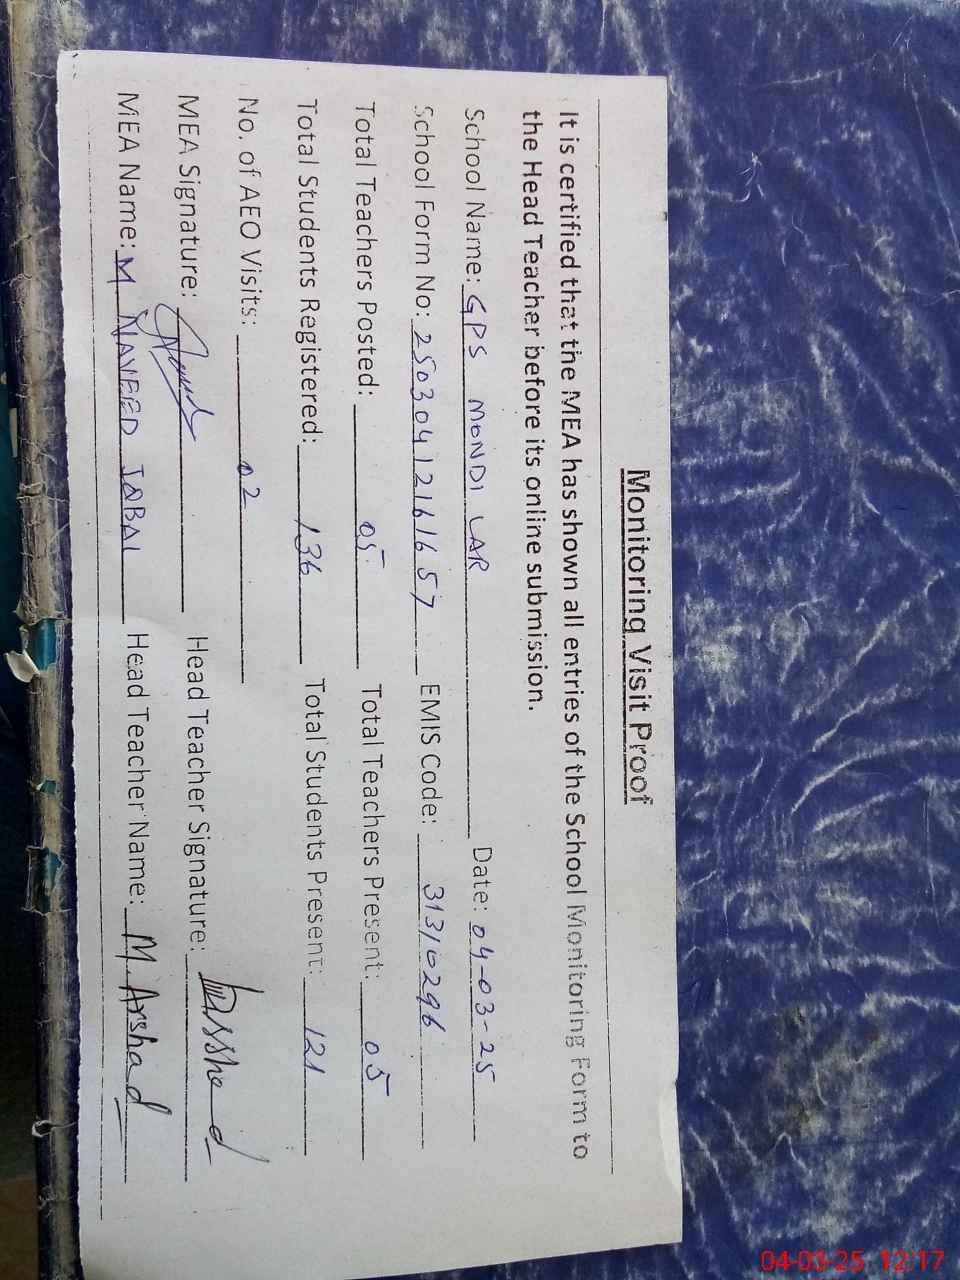 Monitoring Visit Proof
It is certified that the MEA has shown all entries of the School Monitoring Form to
the Head Teacher before its online submission.
School Name: GPS MONDI LAR Date: 04-03-25
School Form No: 25030412161657 EMIS Code: 31310296
Total Teachers Posted: 05 Total Teachers Present: 05
Total Students Registered: 136 Total Students Present: 121
No. of AEO Visits: 02
MEA Signature: Head Teacher Signature:
MEA Name: M NAVEED IQBAL Head Teacher Name: M. Arshad
04-03-25 12:17